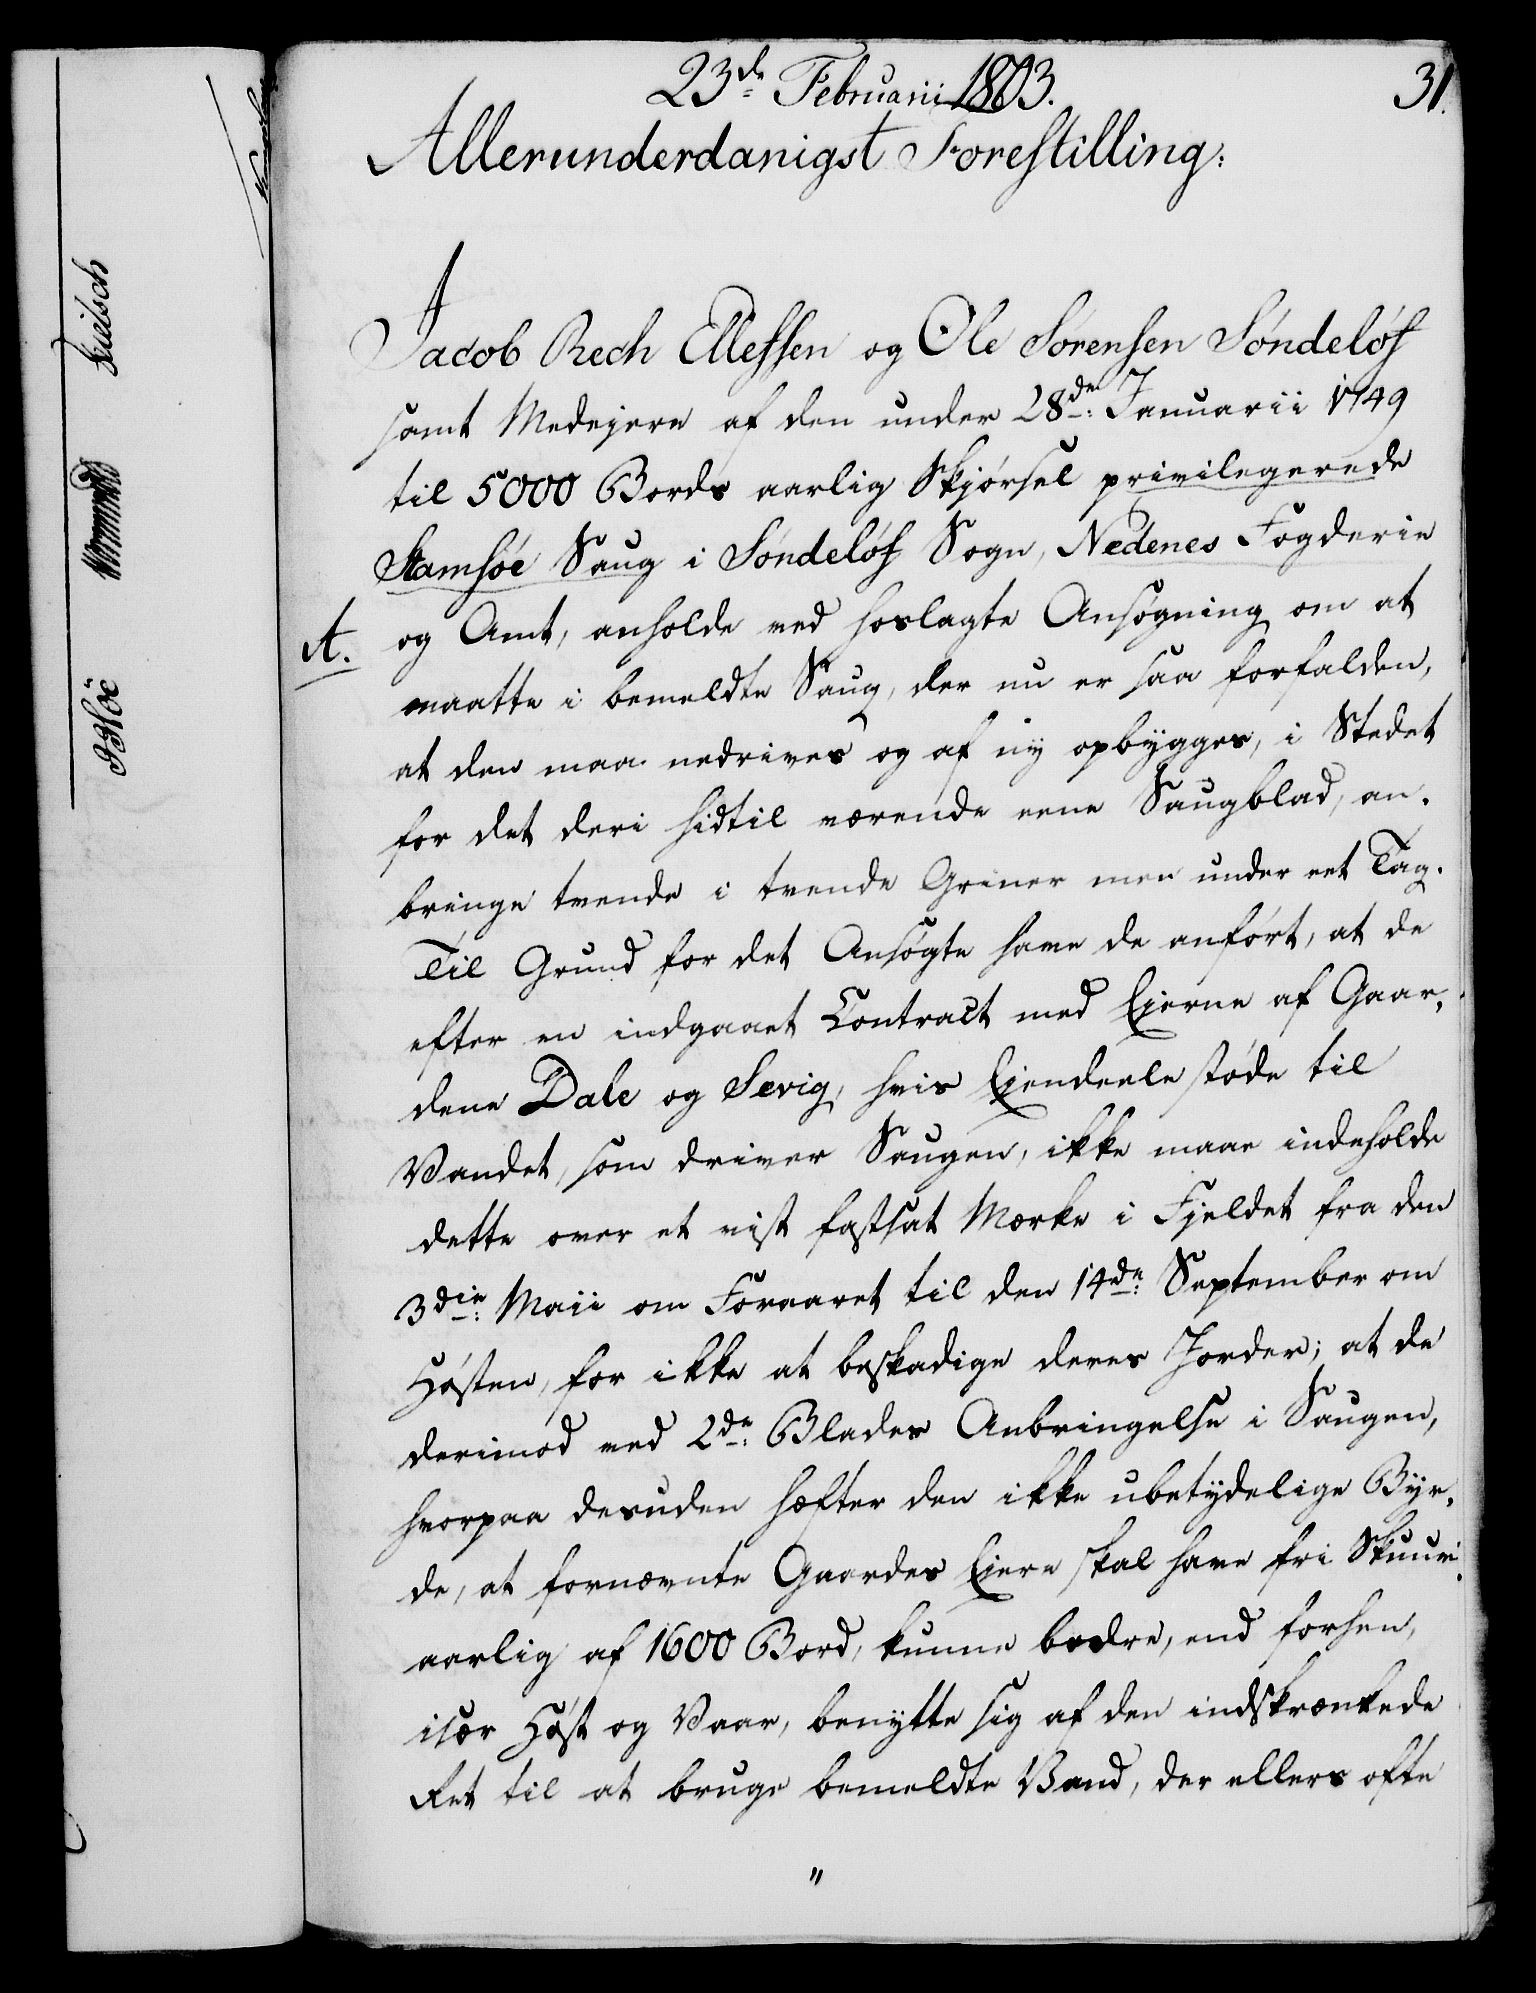 23de Februarii 1803.
31.
Allerunderdanigst Forestilling:
Jacob Rech Ellefsen og Ole Sørensen Søndeløf
samt Medejere af den under 28de: Januarii 1749
til 5000 Bords aarlig Skjørsel privilegerede
Stamsøe Saug i Søndeløf Sogn, Nedenes Fogderie
A.
og Amt, anholde ved hoslagte Ansøgning om at
maatte i bemeldte Saug, der nu er saa forfalden,
at den maa nedrives og af ny opbygges, i Stedet
for det deri hidtil værende eene Saugblad, an-
bringe tvende i tvende Griner men under eet Tag.
Til Grund for det Ansøgte have de anført, at de
efter en indgaaet Contract med Ejerne af Gaar-
dene Dale og Sevig, hvis Ejendeele støde til
Vandet, som driver Saugen, ikke maae indeholde
dette over et vist fastsat Mærke i Fjeldet fra den
3die: Maii om Foraaret til den 14de: September om
Høsten, for ikke at beskadige deres Jorder; at de
derimod ved 2de: Blades Anbringelse i Saugen,
hvorpaa desuden hæfter den ikke ubetydelige Byr-
de, at fornævnte Gaardes Ejere skal have fri Skuur
aarlig af 1600 Bord, kunne bedre, end forhen,
især Høst og Vaar, benytte sig af den indskrænkede
Ret til at bruge bemeldte Vand, der ellers ofte
"